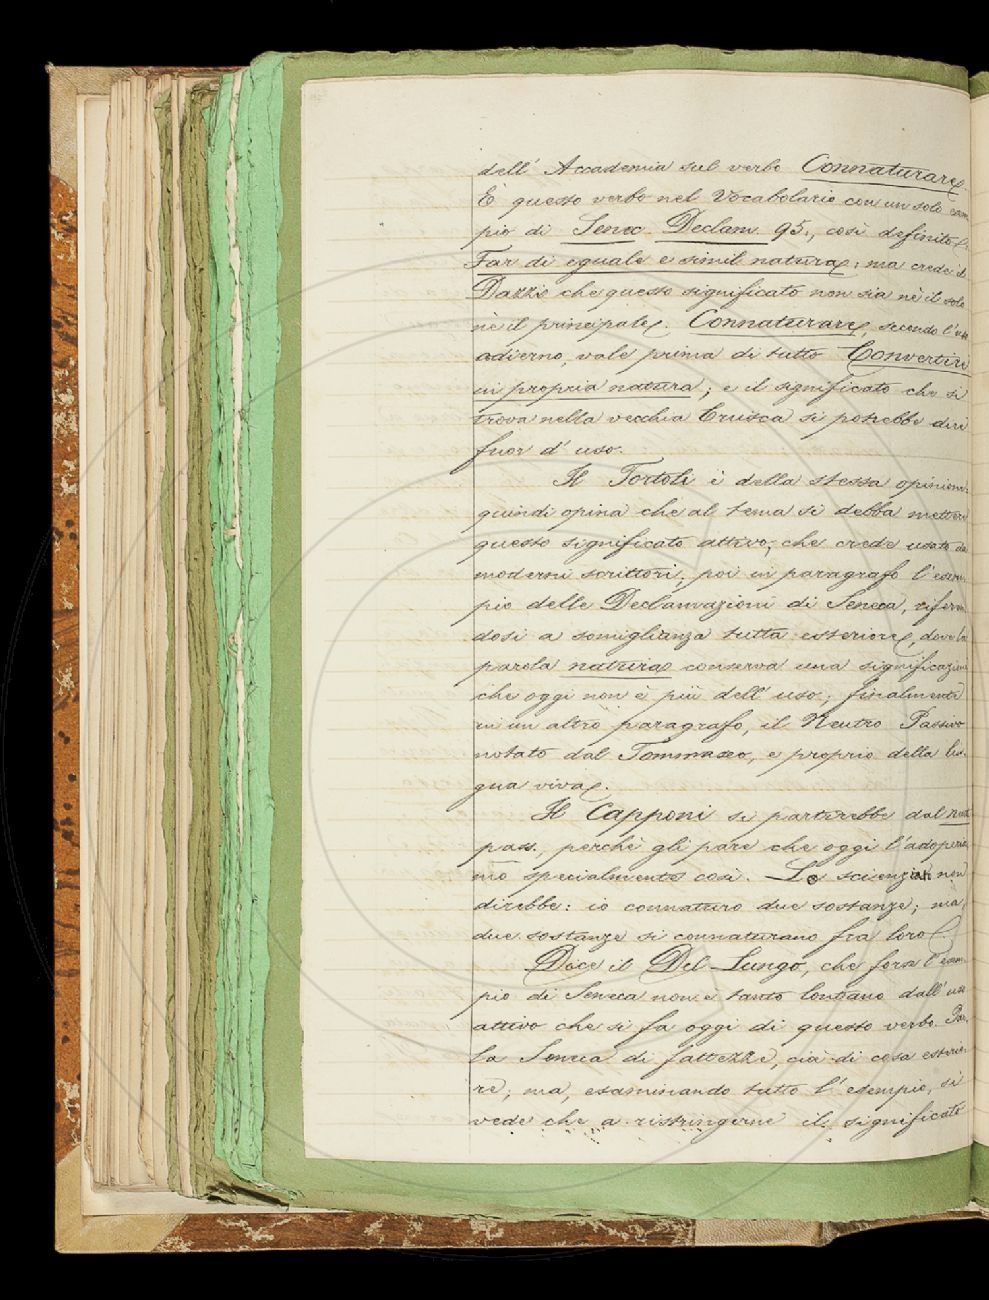 dell' Accademia sul verbo Connaturare.
È questo verbo nel Vocabolario con un solo esem-
pio di Senec. Declam. 95., così definito:
Far di eguale e simil natura; ma crede il
Dazzi che questo significato non sia nè il solo
nè il principale. Connaturare, secondo l'uso
odierno, vale prima di tutto Convertire
in propria natura; e il significato che si
trova nella vecchia Crusca si potrebbe dire
fuor d' uso.
Il Tortoli è della stessa opinione:
quindi opina che al tema si debba mettere
questo significato attivo, che crede usato da
moderni scrittori; poi in paragrafo l'esem-
pio delle Declamazioni di Seneca, riferen-
dosi a somiglianza tutta esteriore, dove la
parola natura conserva una significazione
che oggi non è più dell' uso; finalmente
in un altro paragrafo, il Neutro Passivo
notato dal Tommaseo, e proprio della lin-
gua viva.
Il Capponi si partirebbe dal neut.
pass., perchè gli pare che oggi l'adoperia-
mo specialmente così. Lo scienziato non
direbbe: io connaturo due sostanze; ma,
due sostanze si connaturano fra loro.
Dice il Del Lungo, che forse l'esem-
pio di Seneca non è tanto lontano dall' uso
attivo che si fa oggi di questo verbo. Par-
la Seneca di fattezze, cioè di cosa esterio-
re; ma, esaminando tutto l' esempio, si
vede che a ristringerne il significato